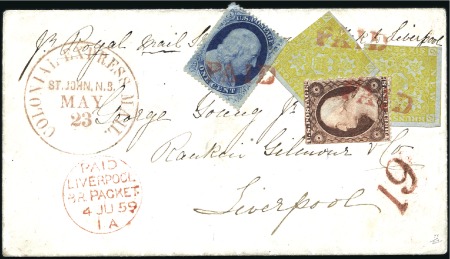 Pr Royal Mail St to Liverpool
PAID
COLONIAL EXPRESS MAIL
ST. JOHN, N.B.
MAY
23
ONE CENT
D
George Young Jr
Rankin Gilmour & Co
Liverpool
PAID
LIVERPOOL
BR. PACKET
4 JU 59
1 A
19